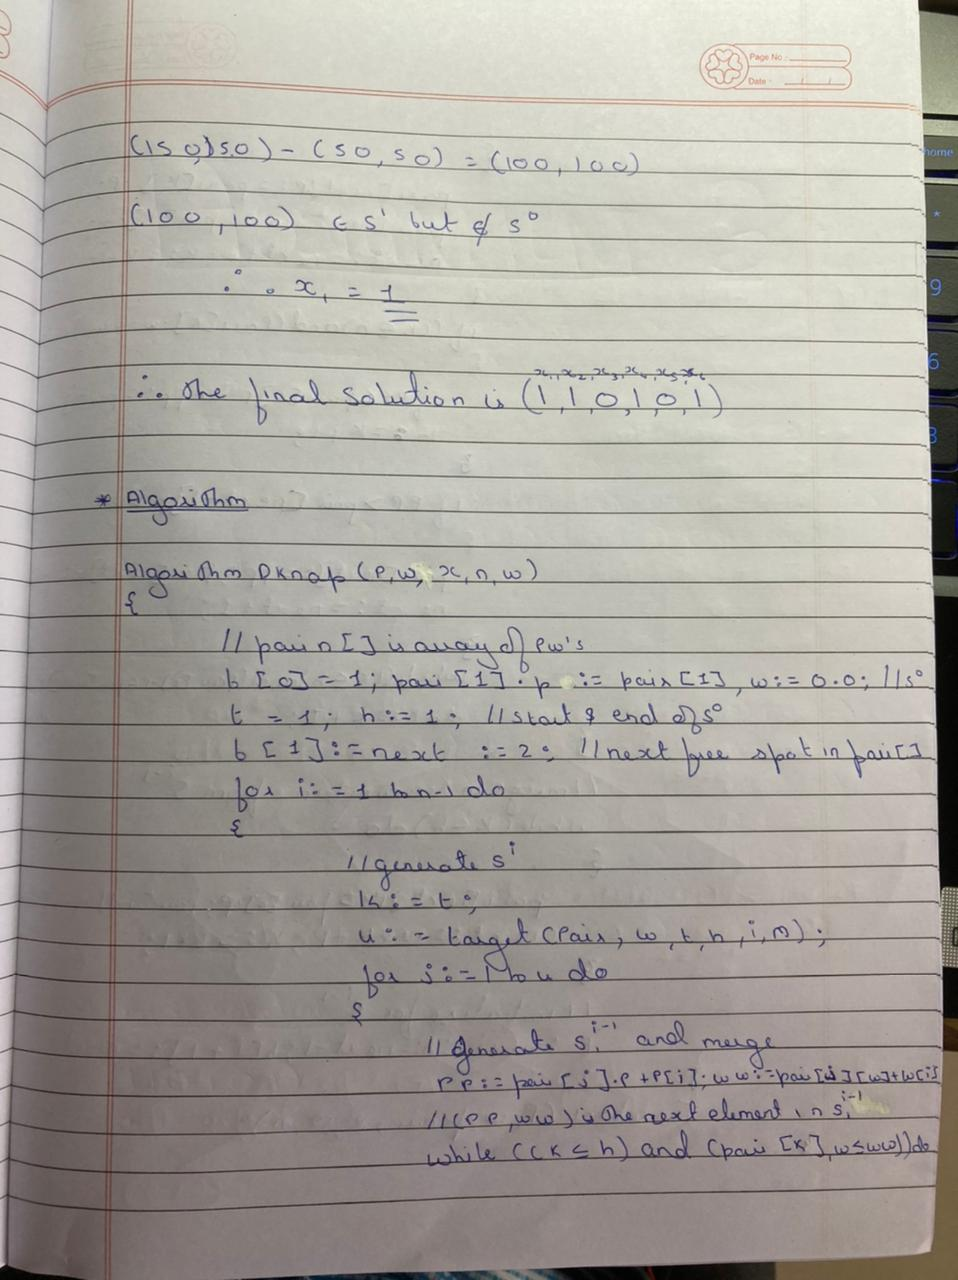 Page No :
Date : / /
(150,150) - (50,50) = (100,100)
(100,100) ∈ S¹ but ∉ S⁰
∴ x₁ = 1
x₁,x₂,x₃,x₄,x₅,x₆
∴ The final solution is (1,1,0,1,0,1)
* Algorithm
Algorithm DKnap (P,w, x, n, w)
{
// pair [] is array of PW's
b [0] = 1; pair [1] . p := pair [1], w := 0.0; // S⁰
t = 1; h := 1; // start & end of S⁰
b [1] := next := 2; // next free spot in pair []
for i := 1 to n-1 do
{
// generate Sⁱ
k := t;
u := target (Pair, w, t, h, i, m);
for j := 1 to u do
{
// generate S₁ⁱ⁻¹ and merge
PP := pair [j].P + P[i]; ww := pair [j] [w] + w[i]
// (PP, ww) is the next element in S₁ⁱ⁻¹
while ((k ≤ h) and (pair [k], w ≤ ww)) do
home
*
9
6
3